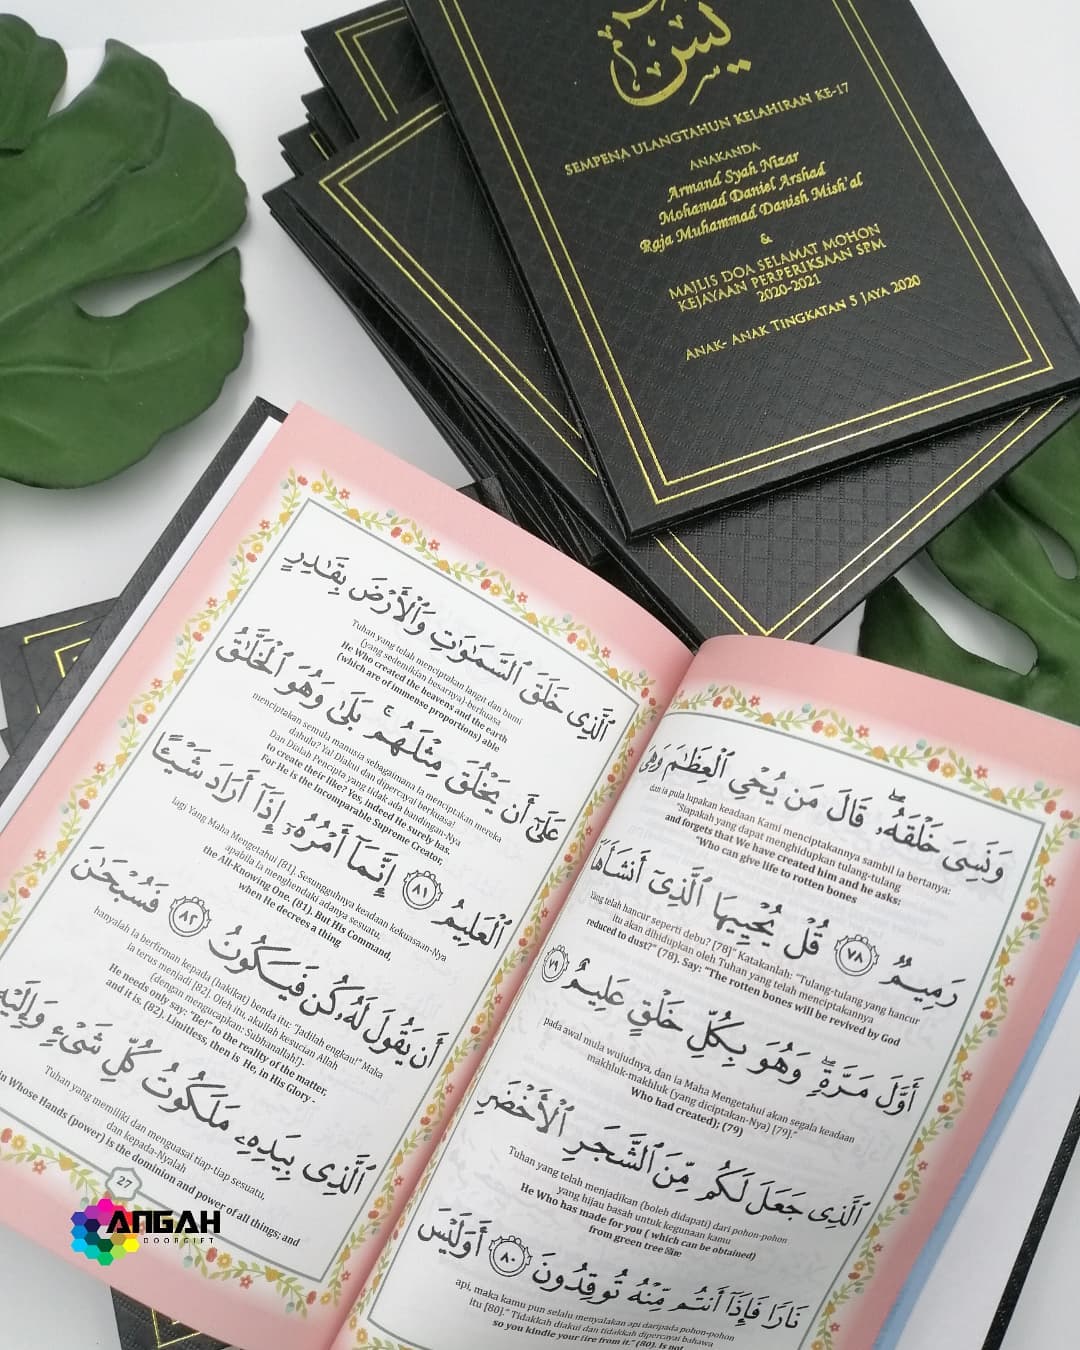 يس
SEMPENA ULANGTAHUN KELAHIRAN KE-17
ANAKANDA
Armand Syah Nizar
Mohamad Daniel Arshad
Raja Muhammad Danish Mish'al
&
MAJLIS DOA SELAMAT MOHON
KEJAYAAN PERPERIKSAAN SPM
2020-2021
ANAK- ANAK TINGKATAN 5 JAYA 2020
وَنَسِىَ خَلْقَهُۥ ۖ قَالَ مَن يُحْىِ ٱلْعِظَـٰمَ وَهِىَ
dan ia pula lupakan keadaan Kami menciptakannya sambil ia bertanya:
"Siapakah yang dapat menghidupkan tulang-tulang
and forgets that We have created him and he asks:
"Who can give life to rotten bones
رَمِيمٌ ٧٨ قُلْ يُحْيِيهَا ٱلَّذِىٓ أَنشَأَهَآ
yang telah hancur seperti debu? [78]" Katakanlah: "Tulang-tulang yang hancur
itu akan dihidupkan oleh Tuhan yang telah menciptakannya
reduced to dust?" (78). Say: "The rotten bones will be revived by God
أَوَّلَ مَرَّةٍ ۖ وَهُوَ بِكُلِّ خَلْقٍ عَلِيمٌ ٧٩
pada awal mula wujudnya, dan ia Maha Mengetahui akan segala keadaan
makhluk-makhluk (yang diciptakan-Nya) [79]."
Who had created); (79)
ٱلَّذِى جَعَلَ لَكُم مِّنَ ٱلشَّجَرِ ٱلْأَخْضَرِ
Tuhan yang telah menjadikan (boleh didapati) dari pohon-pohon
yang hijau basah untuk kegunaan kamu
He Who has made for you ( which can be obtained)
from green tree fire
نَارًا فَإِذَآ أَنتُم مِّنْهُ تُوقِدُونَ ٨٠ أَوَلَيْسَ
api, maka kamu pun selalu menyalakan api daripada pohon-pohon
itu [80]." Tidakkah diakui dan tidakkah dipercayai bahawa
so you kindle your fire from it." (80). Is not
ٱلَّذِى خَلَقَ ٱلسَّمَـٰوَٰتِ وَٱلْأَرْضَ بِقَـٰدِرٍ
Tuhan yang telah menciptakan langit dan bumi
(yang sedemikian besarnya)-berkuasa
He Who created the heavens and the earth
(which are of immense proportions) able
عَلَىٰٓ أَن يَخْلُقَ مِثْلَهُم ۚ بَلَىٰ وَهُوَ ٱلْخَلَّـٰقُ
menciptakan semula manusia sebagaimana Ia menciptakan mereka
dahulu? Ya! Diakui dan dipercayai berkuasa!
Dan Dialah Pencipta yang tidak ada bandingan-Nya
to create their like? Yes, indeed He surely has.
For He is the Incomparable Supreme Creator,
ٱلْعَلِيمُ ٨١ إِنَّمَآ أَمْرُهُۥٓ إِذَآ أَرَادَ شَيْـًٔا
lagi Yang Maha Mengetahui [81]. Sesungguhnya keadaan kekuasaan-Nya
apabila Ia menghendaki adanya sesuatu.
the All-Knowing One. (81). But His Command,
when He decrees a thing
أَن يَقُولَ لَهُۥ كُن فَيَكُونُ ٨٢ فَسُبْحَـٰنَ
hanyalah Ia berfirman kepada (hakikat) benda itu: "Jadilah engkau!" Maka
ia terus menjadi [82]. Oleh itu, akuilah kesucian Allah
(dengan mengucapkan: Subhanallah!)-
He needs only say: "Be!" to the reality of the matter,
and it is. (82). Limitless, then is He, in His Glory -
ٱلَّذِى بِيَدِهِۦ مَلَكُوتُ كُلِّ شَىْءٍ وَإِلَيْهِ
Tuhan yang memiliki dan menguasai tiap-tiap sesuatu,
dan kepada-Nyalah
in Whose Hands (power) is the dominion and power of all things; and
27
ANGAH
DOORGIFT